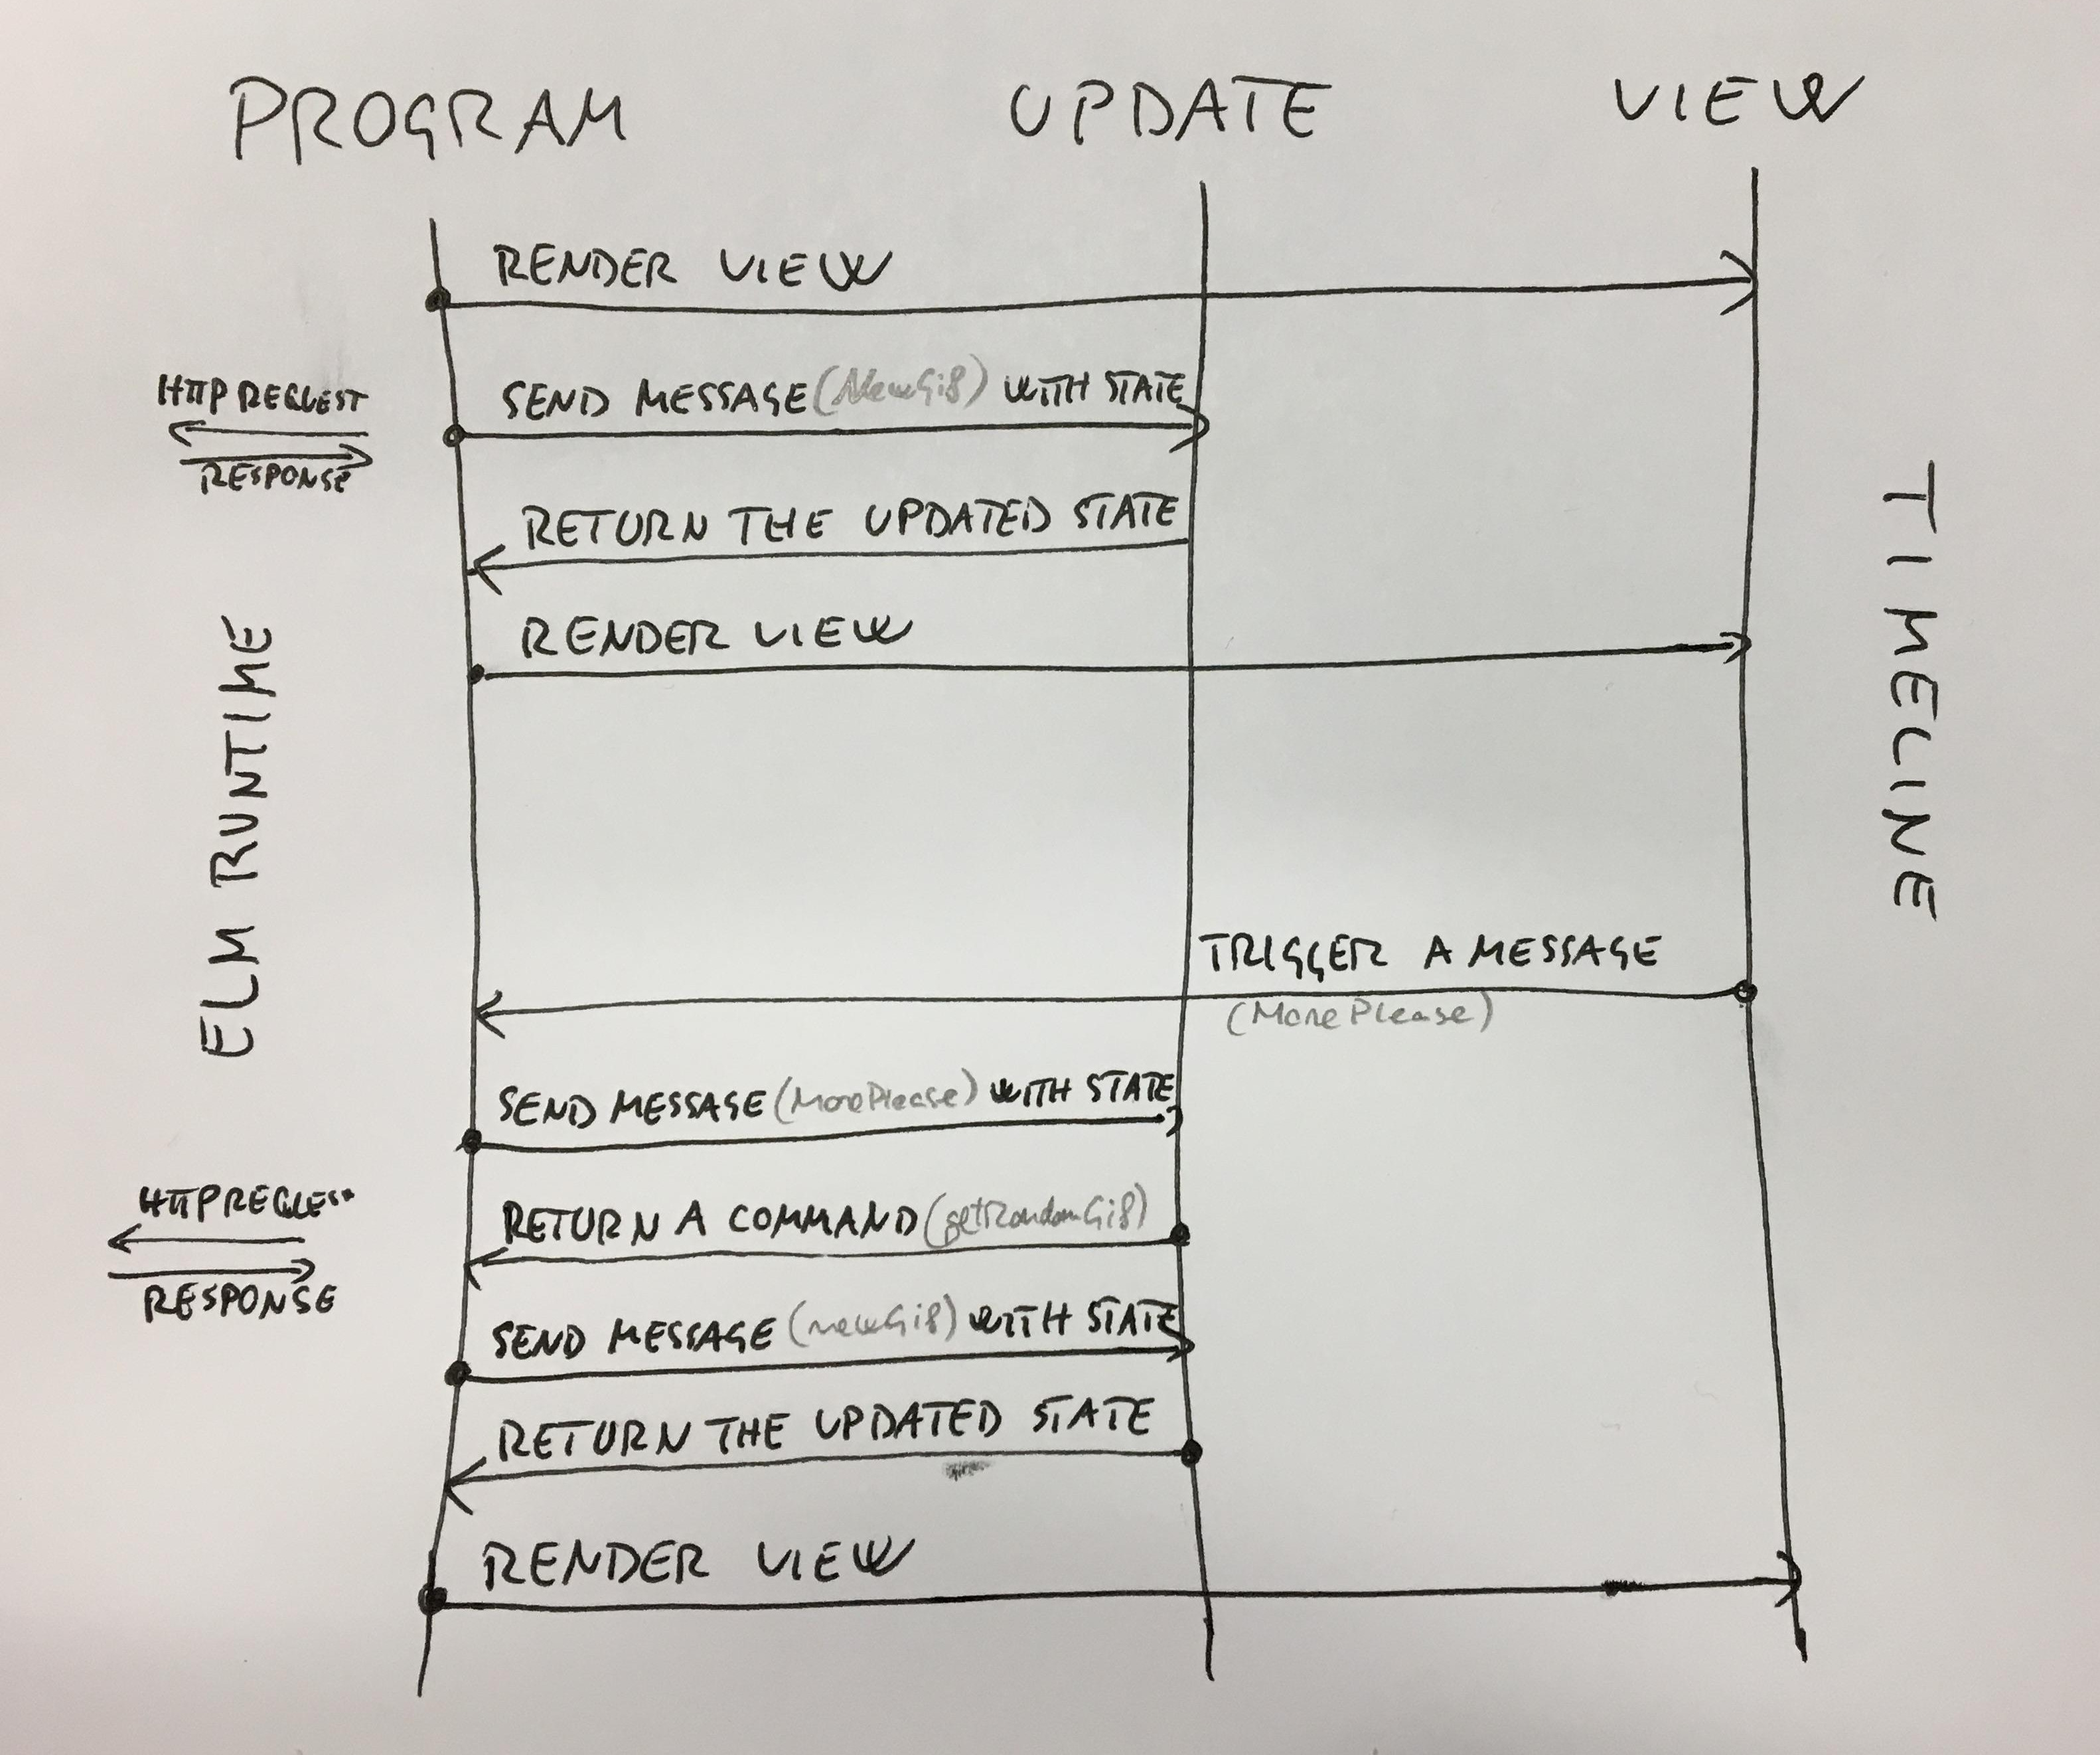 PROGRAM UPDATE VIEW
RENDER VIEW
HTTP REQUEST
SEND MESSAGE (NewGif) WITH STATE
RESPONSE
RETURN THE UPDATED STATE
RENDER VIEW
ELM RUNTIME
TIMELINE
TRIGGER A MESSAGE
(MorePlease)
SEND MESSAGE (MorePlease) WITH STATE
HTTP REQUEST
RETURN A COMMAND (getRandomGif)
RESPONSE
SEND MESSAGE (newGif) WITH STATE
RETURN THE UPDATED STATE
RENDER VIEW